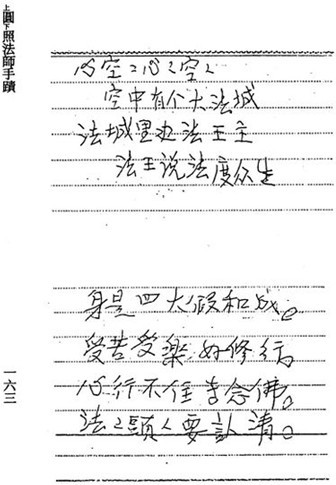 上圓下照法師手蹟
心空〻心〻空〻
空中有个大法城
法城里边法王主
法王说法度众生
身是四大假和成。
受苦受樂好修行。
心行不住声念佛。
法〻頭〻要認清。
一六三